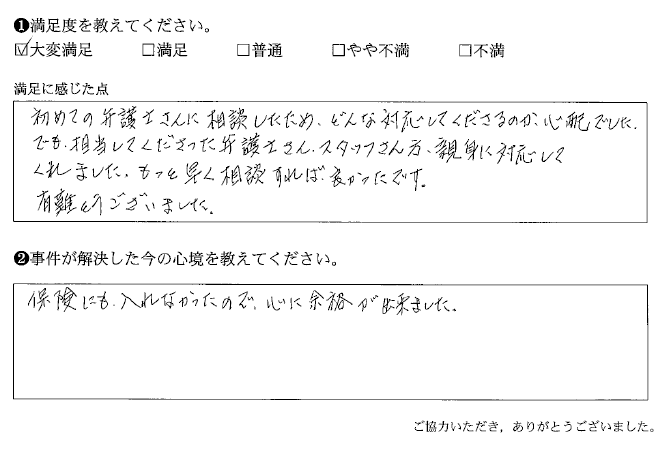 ❶満足度を教えてください。
☑大変満足 □満足 □普通 □やや不満 □不満
満足に感じた点
初めての弁護士さんに相談したため、どんな対応してくださるのか、心配でした。
でも、担当してくださった弁護士さん、スタッフさん方、親身に対応して
くれました。もっと早く相談すれば良かったです。
有難とうございました。
❷事件が解決した今の心境を教えてください。
保険にも、入れなかったので、心に余裕が出来ました。
ご協力いただき，ありがとうございました。